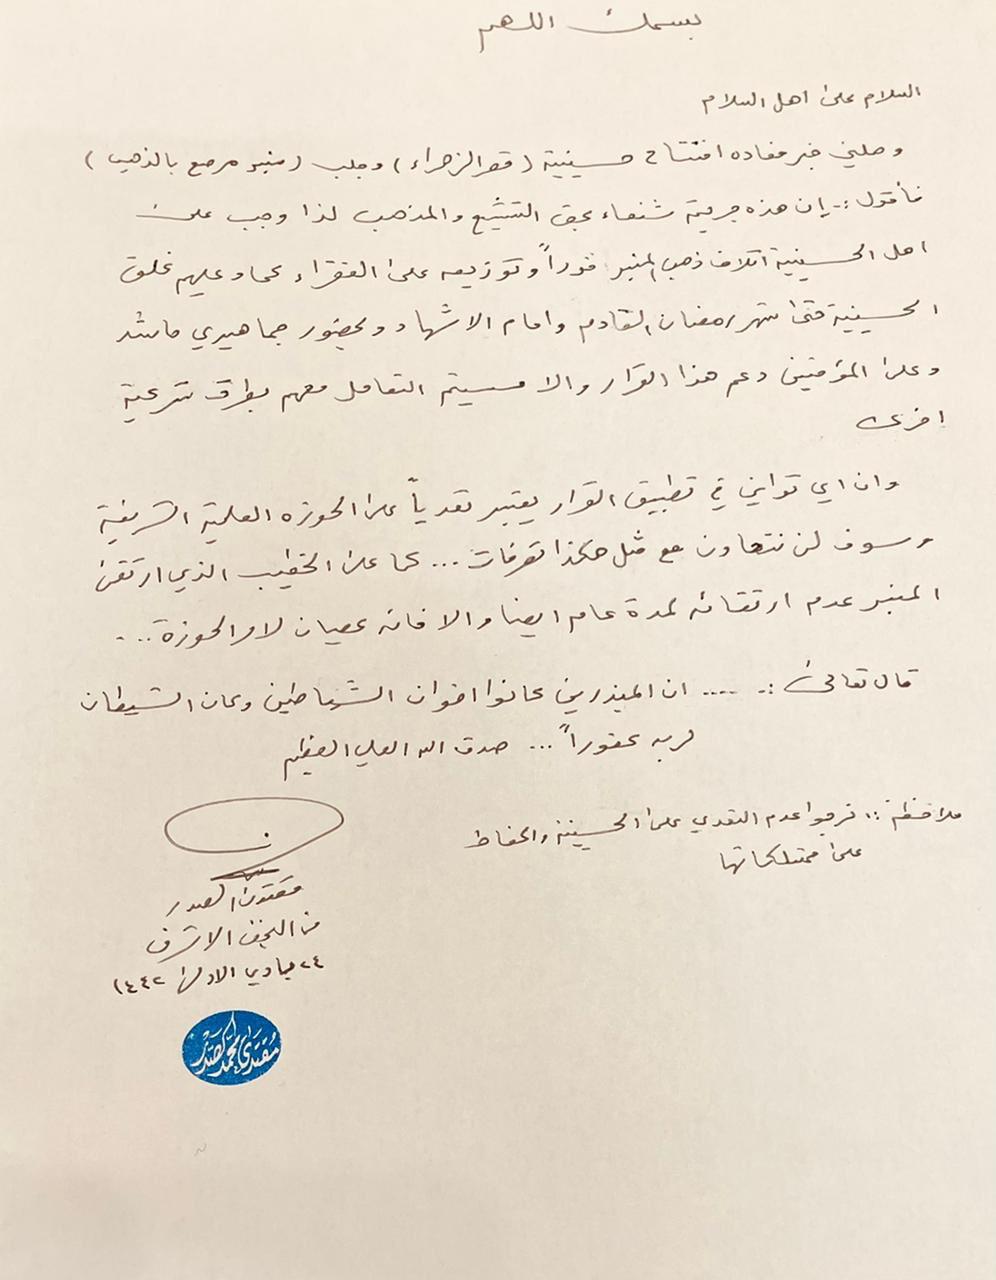 بسمك اللهم
السلام على اهل السلام
وصلني خبر مفاده افتتاح حسينية (قصر الزهراء) وجلب (منبر مرصع بالذهب)
فأقول :- إن هذه جريمة شنعاء بحق التشيع والمذهب لذا وجب على
اهل الحسينية اتلاف ذهب المنبر فوراً وتوزيعه على الفقراء كما وعليهم غلق
الحسينية حتى شهر رمضان القادم وامام الاشهاد وبحضور جماهيري حاشد
وعلى المؤمنين دعم هذا القرار والا سيتم التعامل معهم بطرق شرعية
اخرى
وان اي تواني في تطبيق القرار يعتبر تعدياً على الحوزه العلمية الشريفة
وسوف لن نتهاون مع مثل هكذا تصرفات ... كما على الخطيب الذي ارتقى
المنبر عدم ارتقائه لمدة عام ايضا والا فانه عصيان لامر الحوزة ...
قال تعالى :- .... ان المبذرين كانوا اخوان الشياطين وكان الشيطان
لربه كفوراً ... صدق الله العلي العظيم
ملاحظة :: نرجوا عدم التعدي على الحسينية والحفاظ
على ممتلكاتها
مقتدى الصدر
من النجف الاشرف
٢٤ جمادي الاولى ١٤٤٢
مقتدى محمد الصدر